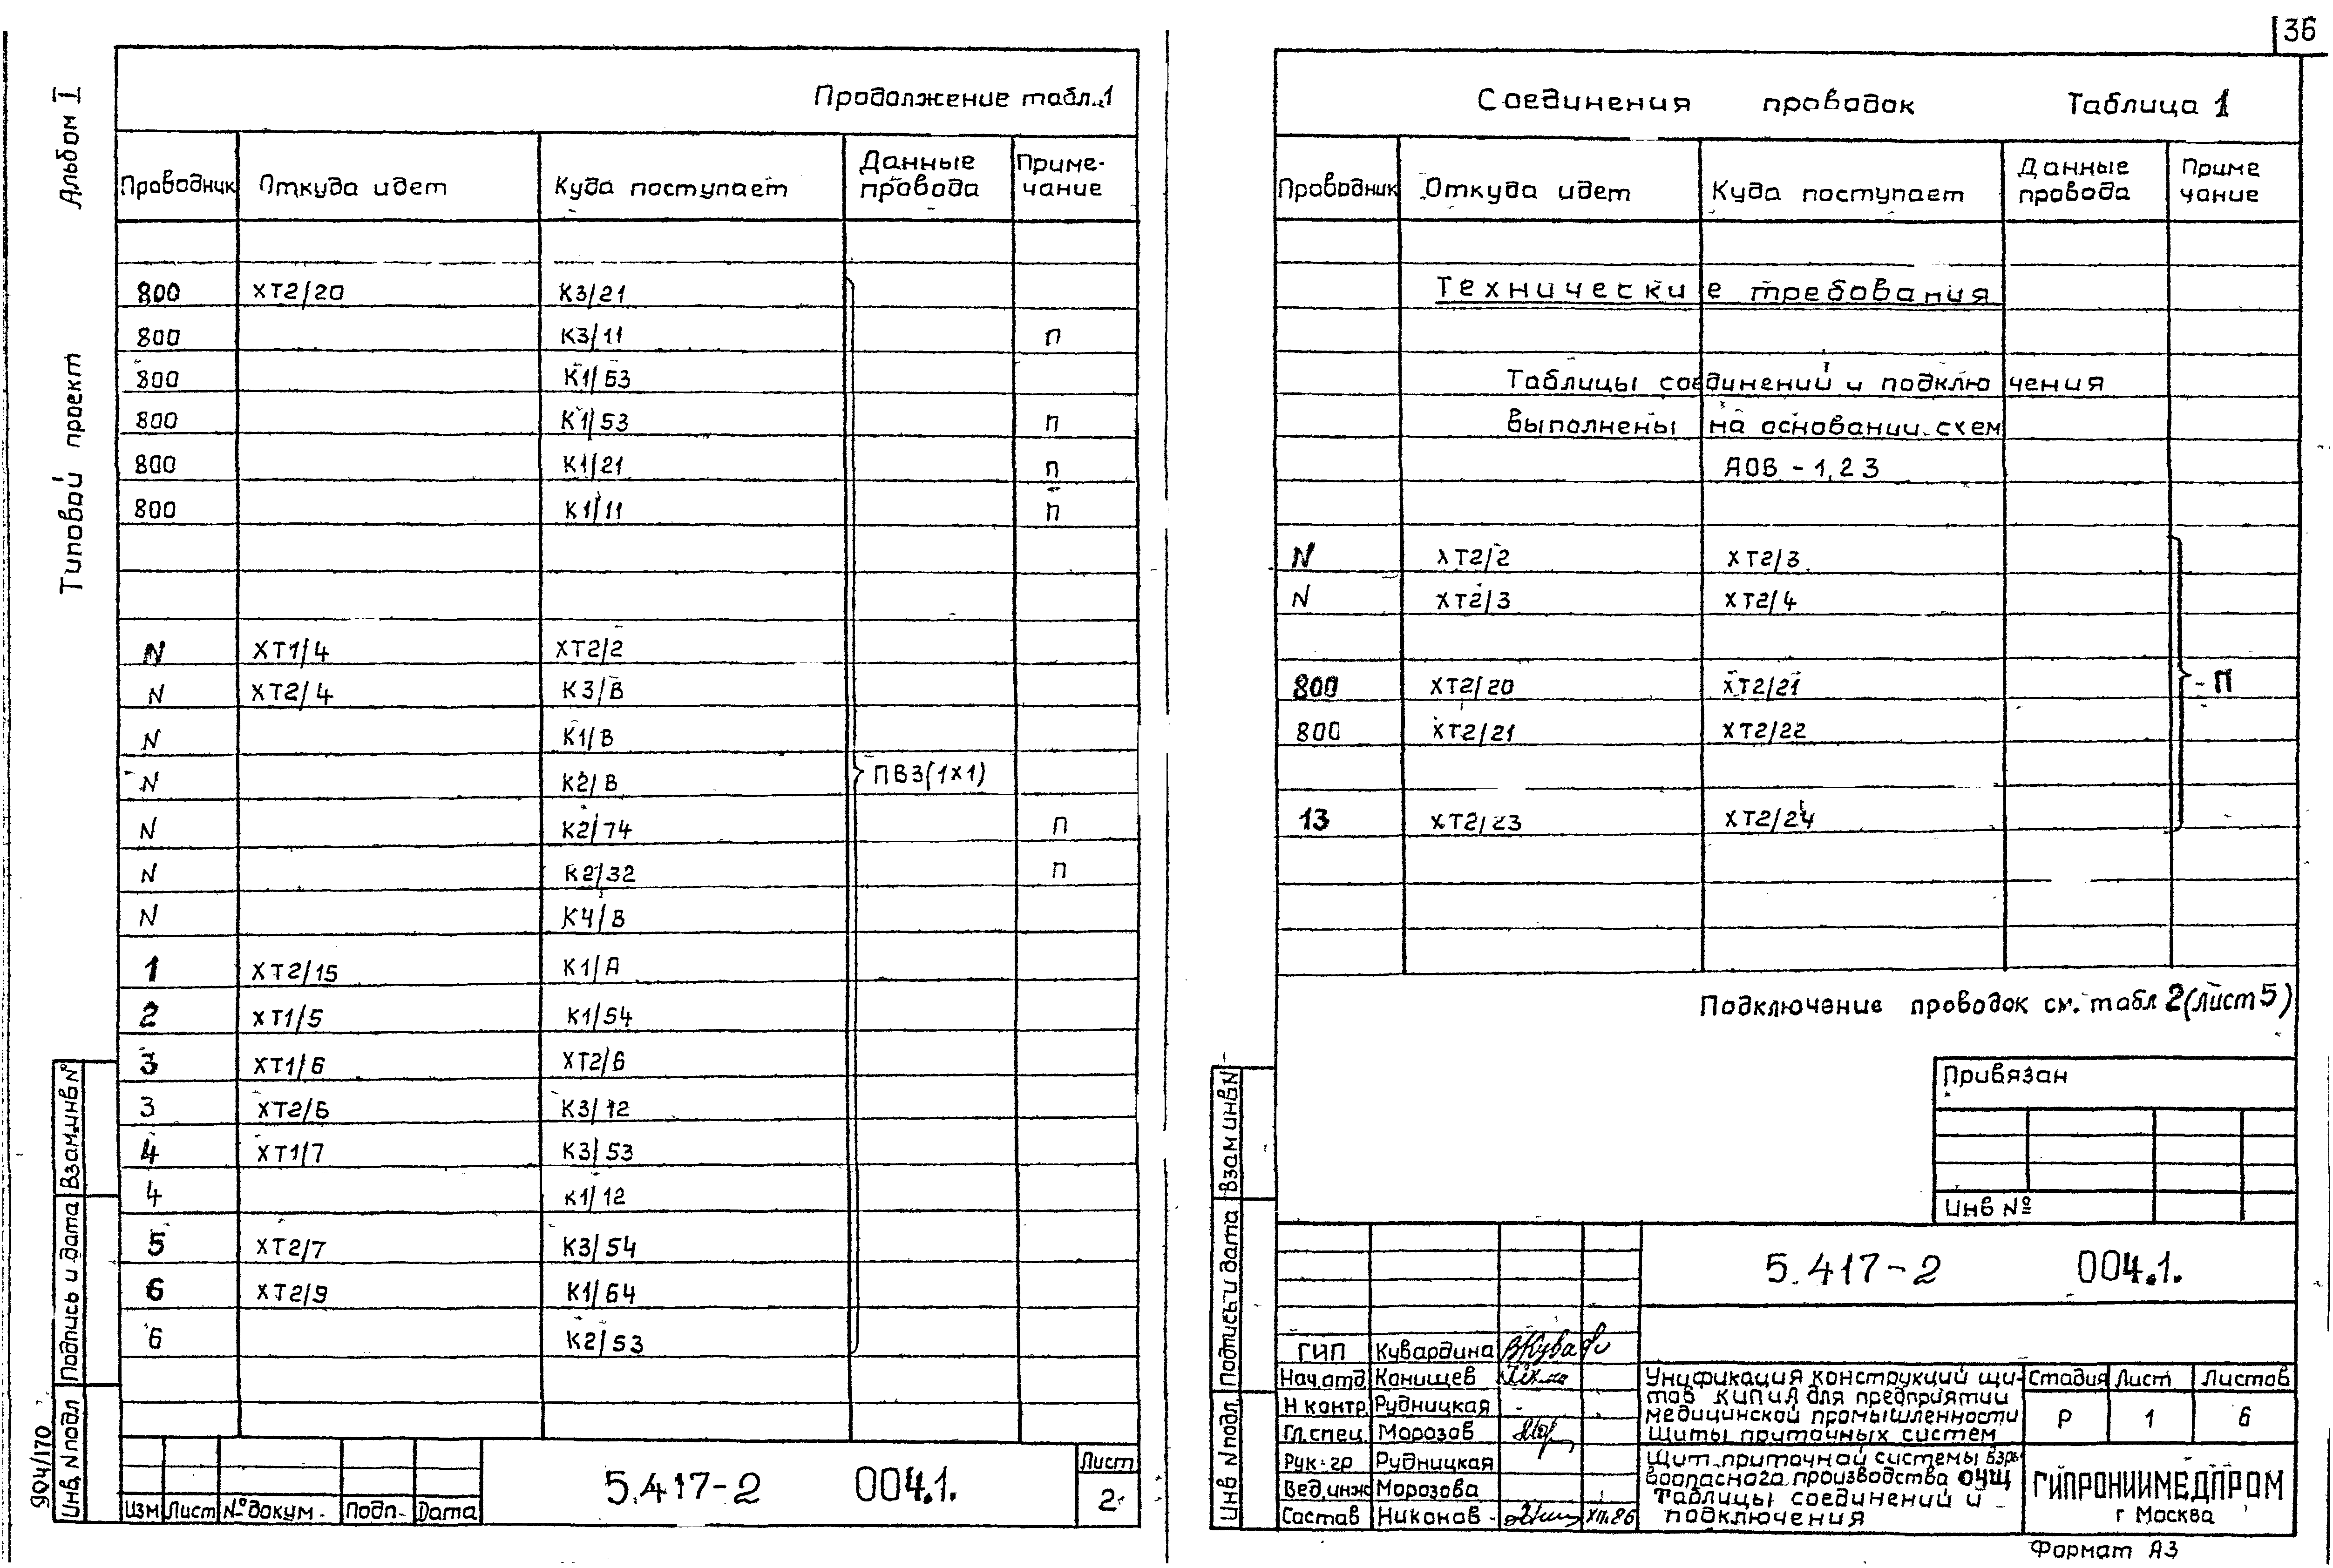 36
Альбом I
Типовой проект
Продолжение табл.1
Проводник Откуда идет Куда поступает Данные провода Приме-чание
800 ХТ2/20 К3/21
800 К3/11 П
800 К1/63
800 К1/53 П
800 К1/21 П
800 К1/11 П
N ХТ1/4 ХТ2/2
N ХТ2/4 К3/В
N К1/В
N К2/В ПВ3(1х1)
N К2/74 П
N К2/32 П
N К4/В
1 ХТ2/15 К1/А
2 ХТ1/5 К1/54
3 ХТ1/6 ХТ2/6
3 ХТ2/6 К3/12
4 ХТ1/7 К3/53
4 К1/12
5 ХТ2/7 К3/54
6 ХТ2/9 К1/64
6 К2/53
Изм Лист № докум. Подп. Дата
5.417-2 004.1.
Лист
2
Взам.инв N
Подпись и дата
Инв. N подл
904/170
Соединения проводок Таблица 1
Проводник Откуда идет Куда поступает Данные провода Приме чание
Технические требования
Таблицы соединений и подключения
выполнены на основании схем
АОВ - 1,2 3
N ХТ2/2 ХТ2/3
N ХТ2/3 ХТ2/4
800 ХТ2/20 ХТ2/21 - П
800 ХТ2/21 ХТ2/22
13 ХТ2/23 ХТ2/24
Подключение проводок см. табл 2 (лист 5)
Привязан
Инв №
Взам инв N
Подпись и дата
Инв N подл
5.417-2 004.1.
ГИП Кувардина
Нач.отд Канищев
Н контр. Рудницкая
Гл.спец. Морозов
Рук. гр Рудницкая
Вед.инж Морозова
Состав Никонов XII.86
Унификация конструкций щи-
тов КИПиА для предприятии
медицинской промышленности
Щиты приточных систем
Щит приточной системы взры
воопасного производства ОЧЩ
Таблицы соединений и
подключения
Стадия Лист Листов
Р 1 6
ГИПРОНИИМЕДПРОМ
г Москва
Формат А3